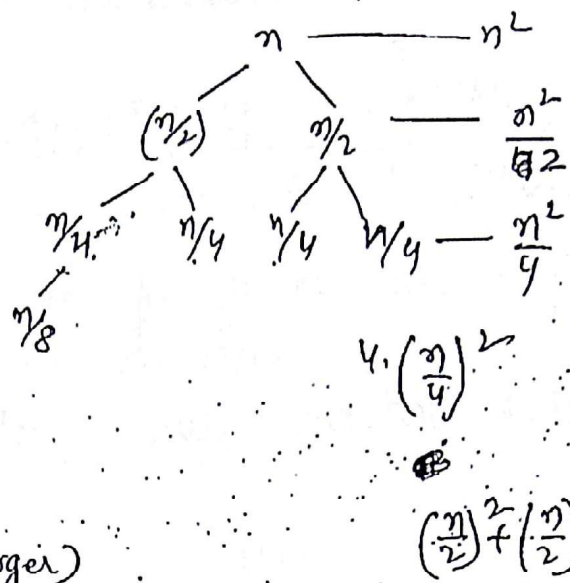 n — n²
(n/2) n/2 — n²/2
n/4 n/4 n/4 n/4 — n²/4
n/8
4. (n/4)²
(n/2)² + (n/2)
ger)